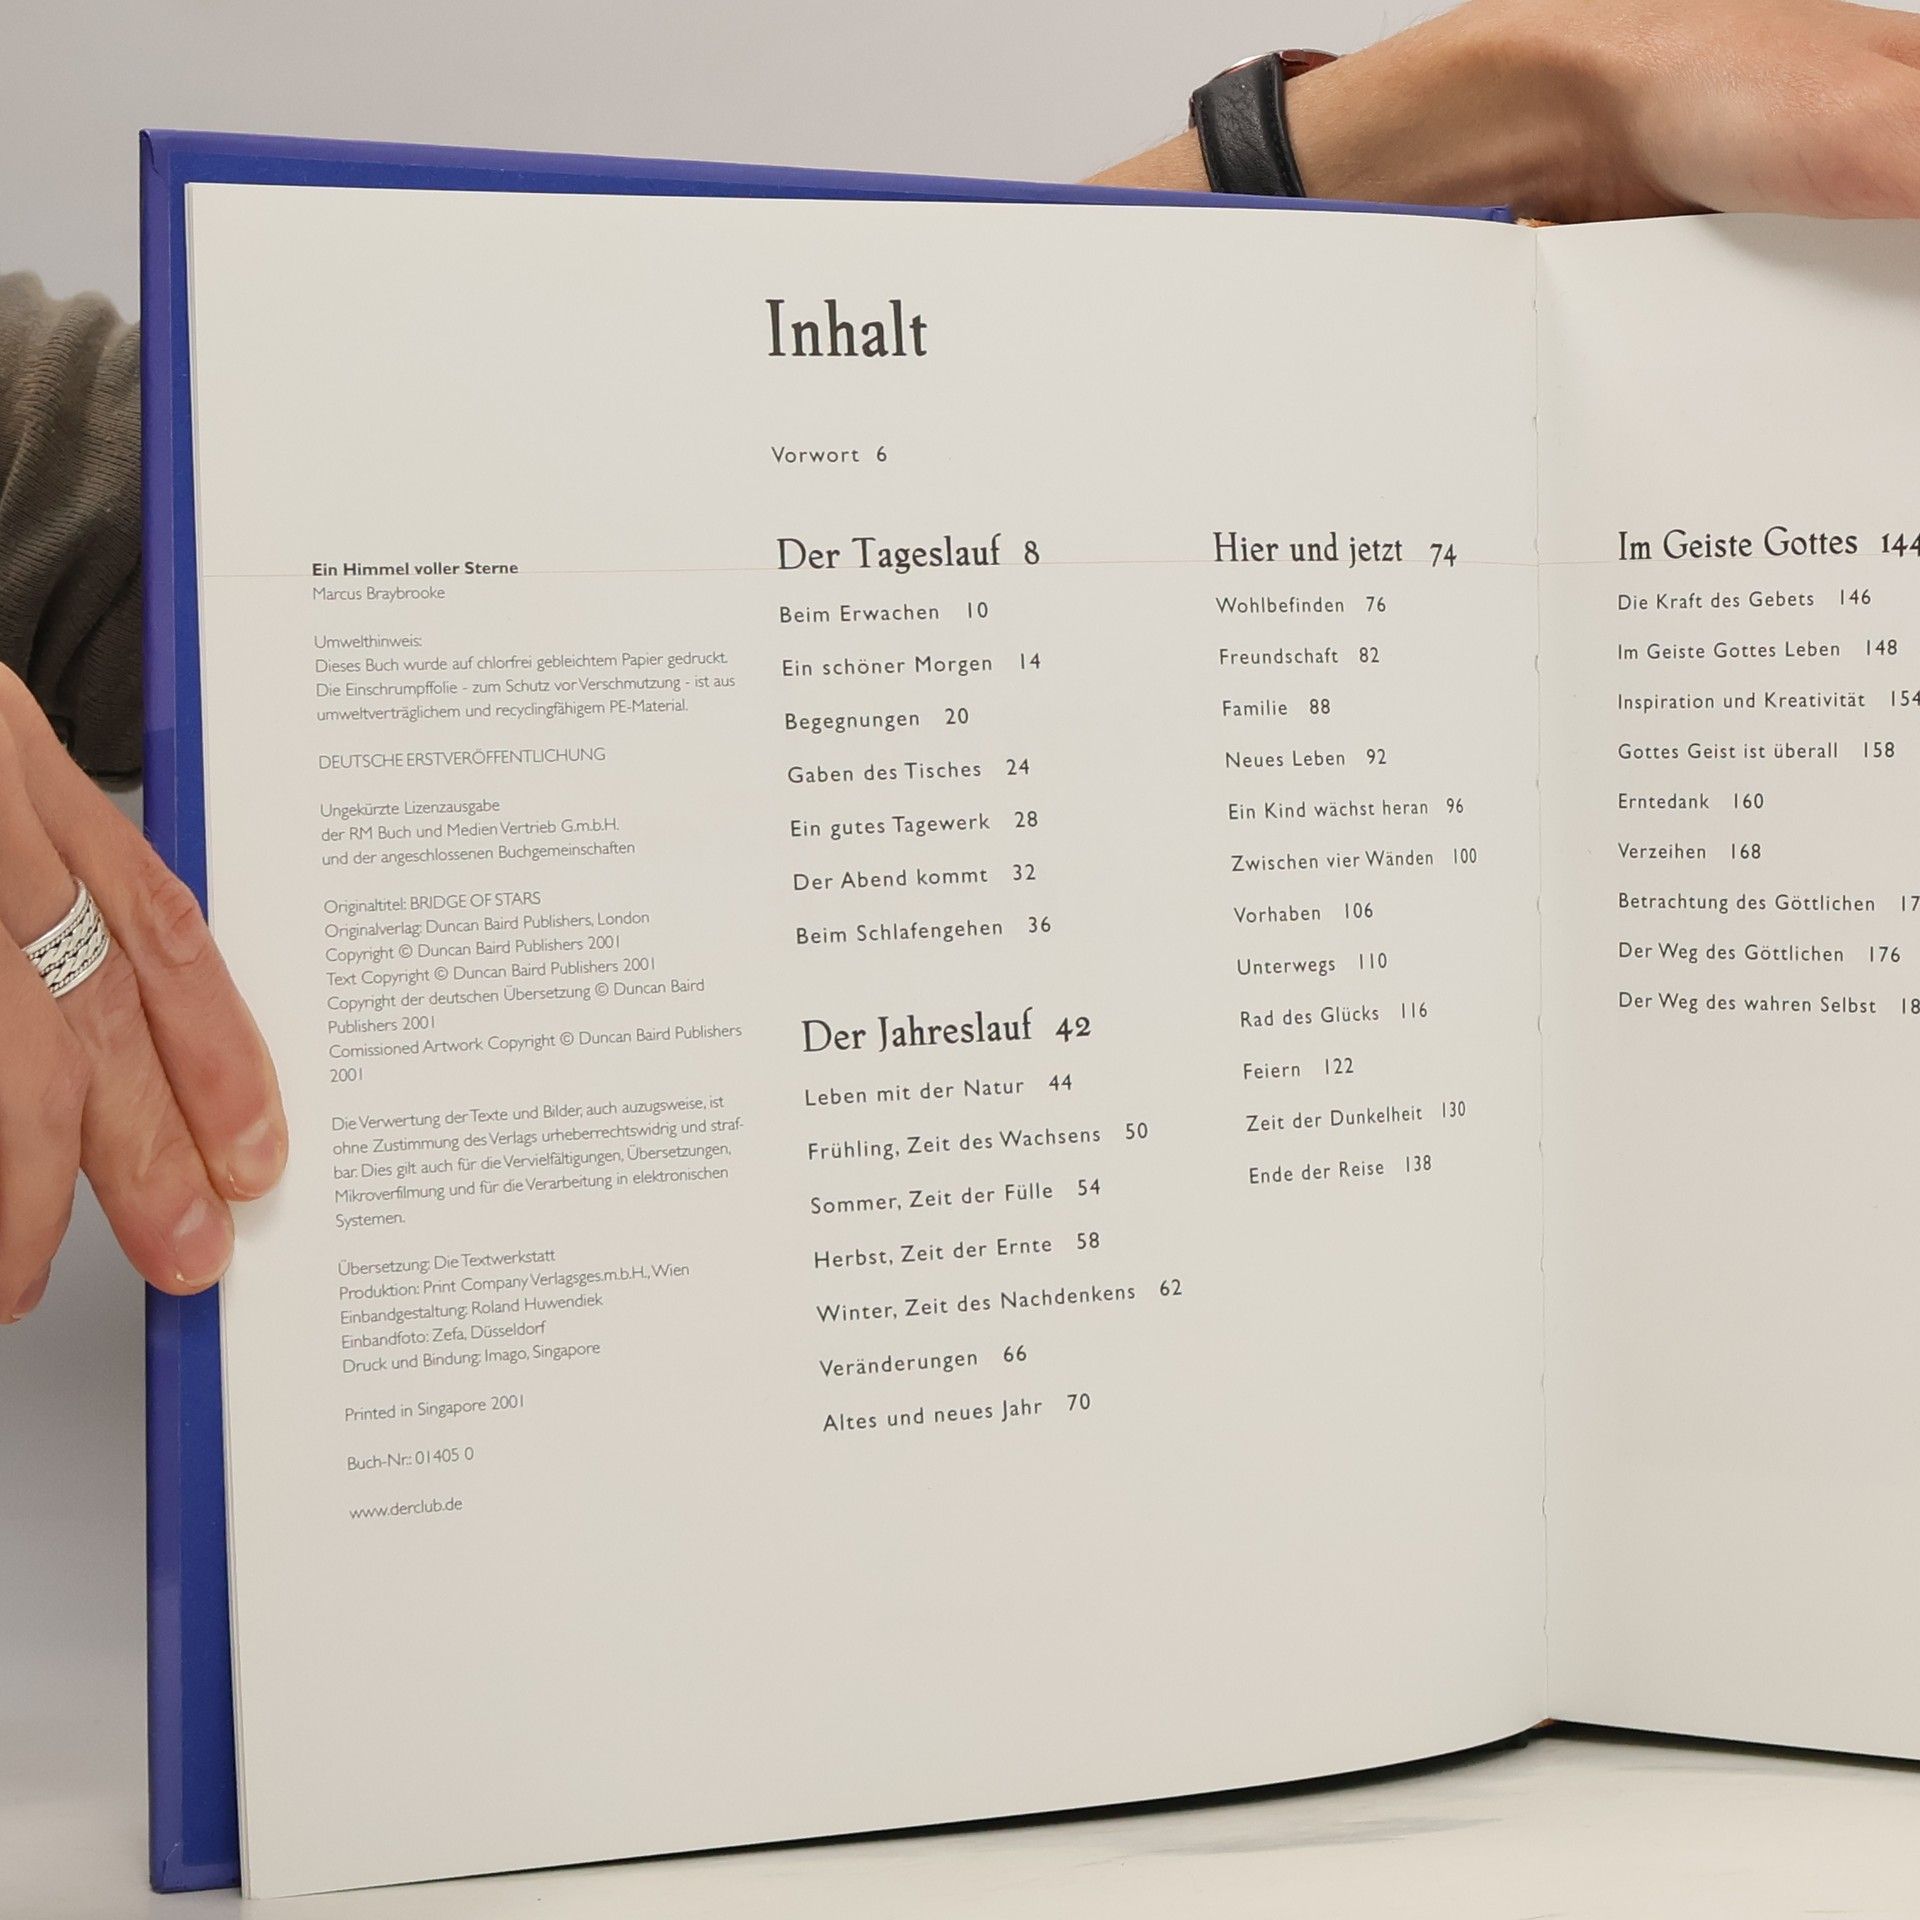 Inhalt
Vorwort 6
Ein Himmel voller Sterne
Marcus Braybrooke
Umwelthinweis:
Dieses Buch wurde auf chlorfrei gebleichtem Papier gedruckt.
Die Einschrumpffolie - zum Schutz vor Verschmutzung - ist aus
umweltverträglichem und recyclingfähigem PE-Material.
DEUTSCHE ERSTVERÖFFENTLICHUNG
Ungekürzte Lizenzausgabe
der RM Buch und Medien Vertrieb G.m.b.H.
und der angeschlossenen Buchgemeinschaften
Originaltitel: BRIDGE OF STARS
Originalverlag: Duncan Baird Publishers, London
Copyright © Duncan Baird Publishers 2001
Text Copyright © Duncan Baird Publishers 2001
Copyright der deutschen Übersetzung © Duncan Baird
Publishers 2001
Comissioned Artwork Copyright © Duncan Baird Publishers
2001
Die Verwertung der Texte und Bilder, auch auzugsweise, ist
ohne Zustimmung des Verlags urheberrechtswidrig und straf-
bar. Dies gilt auch für die Vervielfältigungen, Übersetzungen,
Mikroverfilmung und für die Verarbeitung in elektronischen
Systemen.
Übersetzung: Die Textwerkstatt
Produktion: Print Company Verlagsges.m.b.H., Wien
Einbandgestaltung: Roland Huwendiek
Einbandfoto: Zefa, Düsseldorf
Druck und Bindung: Imago, Singapore
Printed in Singapore 2001
Buch-Nr.: 01405 0
www.derclub.de
Der Tageslauf 8
Beim Erwachen 10
Ein schöner Morgen 14
Begegnungen 20
Gaben des Tisches 24
Ein gutes Tagewerk 28
Der Abend kommt 32
Beim Schlafengehen 36
Der Jahreslauf 42
Leben mit der Natur 44
Frühling, Zeit des Wachsens 50
Sommer, Zeit der Fülle 54
Herbst, Zeit der Ernte 58
Winter, Zeit des Nachdenkens 62
Veränderungen 66
Altes und neues Jahr 70
Hier und jetzt 74
Wohlbefinden 76
Freundschaft 82
Familie 88
Neues Leben 92
Ein Kind wächst heran 96
Zwischen vier Wänden 100
Vorhaben 106
Unterwegs 110
Rad des Glücks 116
Feiern 122
Zeit der Dunkelheit 130
Ende der Reise 138
Im Geiste Gottes 144
Die Kraft des Gebets 146
Im Geiste Gottes Leben 148
Inspiration und Kreativität 154
Gottes Geist ist überall 158
Erntedank 160
Verzeihen 168
Betrachtung des Göttlichen 17
Der Weg des Göttlichen 176
Der Weg des wahren Selbst 18